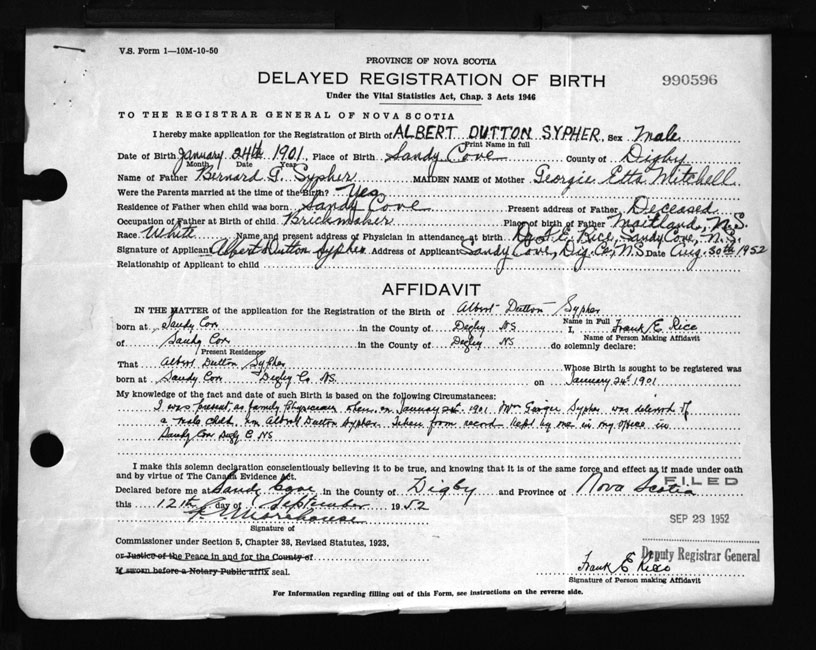 V.S. Form 1—10M-10-50
PROVINCE OF NOVA SCOTIA
DELAYED REGISTRATION OF BIRTH
990596
Under the Vital Statistics Act, Chap. 3 Acts 1946
TO THE REGISTRAR GENERAL OF NOVA SCOTIA
I hereby make application for the Registration of Birth of ALBERT DUTTON SYPHER, Sex Male
Print Name in full
Date of Birth January 24th 1901, Place of Birth Sandy Cove County of Digby
Month Date Year
Name of Father Bernard T. Sypher MAIDEN NAME of Mother Georgie Etta Mitchell
Were the Parents married at the time of the Birth? Yes
Residence of Father when child was born Sandy Cove Present address of Father, Deceased
Occupation of Father at Birth of child. Brickmaker Place of birth of Father Maitland, N.S.
Race White Name and present address of Physician in attendance at birth Dr. F. E. Rice, Sandy Cove, N.S.
Signature of Applicant Albert Dutton Sypher Address of Applicant Sandy Cove, Dig. Co., N.S. Date Aug. 30th 1952
Relationship of Applicant to child
AFFIDAVIT
IN THE MATTER of the application for the Registration of Birth of Albert Dutton Sypher
Name in Full
born at Sandy Cove in the County of Digby NS I, Frank E Rice
Name of Person Making Affidavit
of Sandy Cove in the County of Digby NS do solemnly declare:
Present Residence
That Albert Dutton Sypher Whose Birth is sought to be registered was
born at Sandy Cove Digby Co NS. on January 24 1901
My knowledge of the fact and date of such Birth is based on the following Circumstances:
I was present as family Physician when on January 24 1901 Mrs Sypher was delivered of
a male child Albert Dutton Sypher. Taken from record kept by me in my office in
Sandy Cove Digby Co NS
I make this solemn declaration conscientiously believing it to be true, and knowing that it is of the same force and effect as if made under oath
and by virtue of The Canada Evidence Act.
FILED
Declared before me at Sandy Cove in the County of Digby and Province of Nova Scotia
this 12th day of September 1952
SEP 23 1952
Morehouse
Signature of
Commissioner under Section 5, Chapter 38, Revised Statutes, 1923,
or Justice of the Peace in and for the County of
Deputy Registrar General
If sworn before a Notary Public affix seal.
Frank E Rice
Signature of Person making Affidavit
For Information regarding filling out of this Form, see instructions on the reverse side.